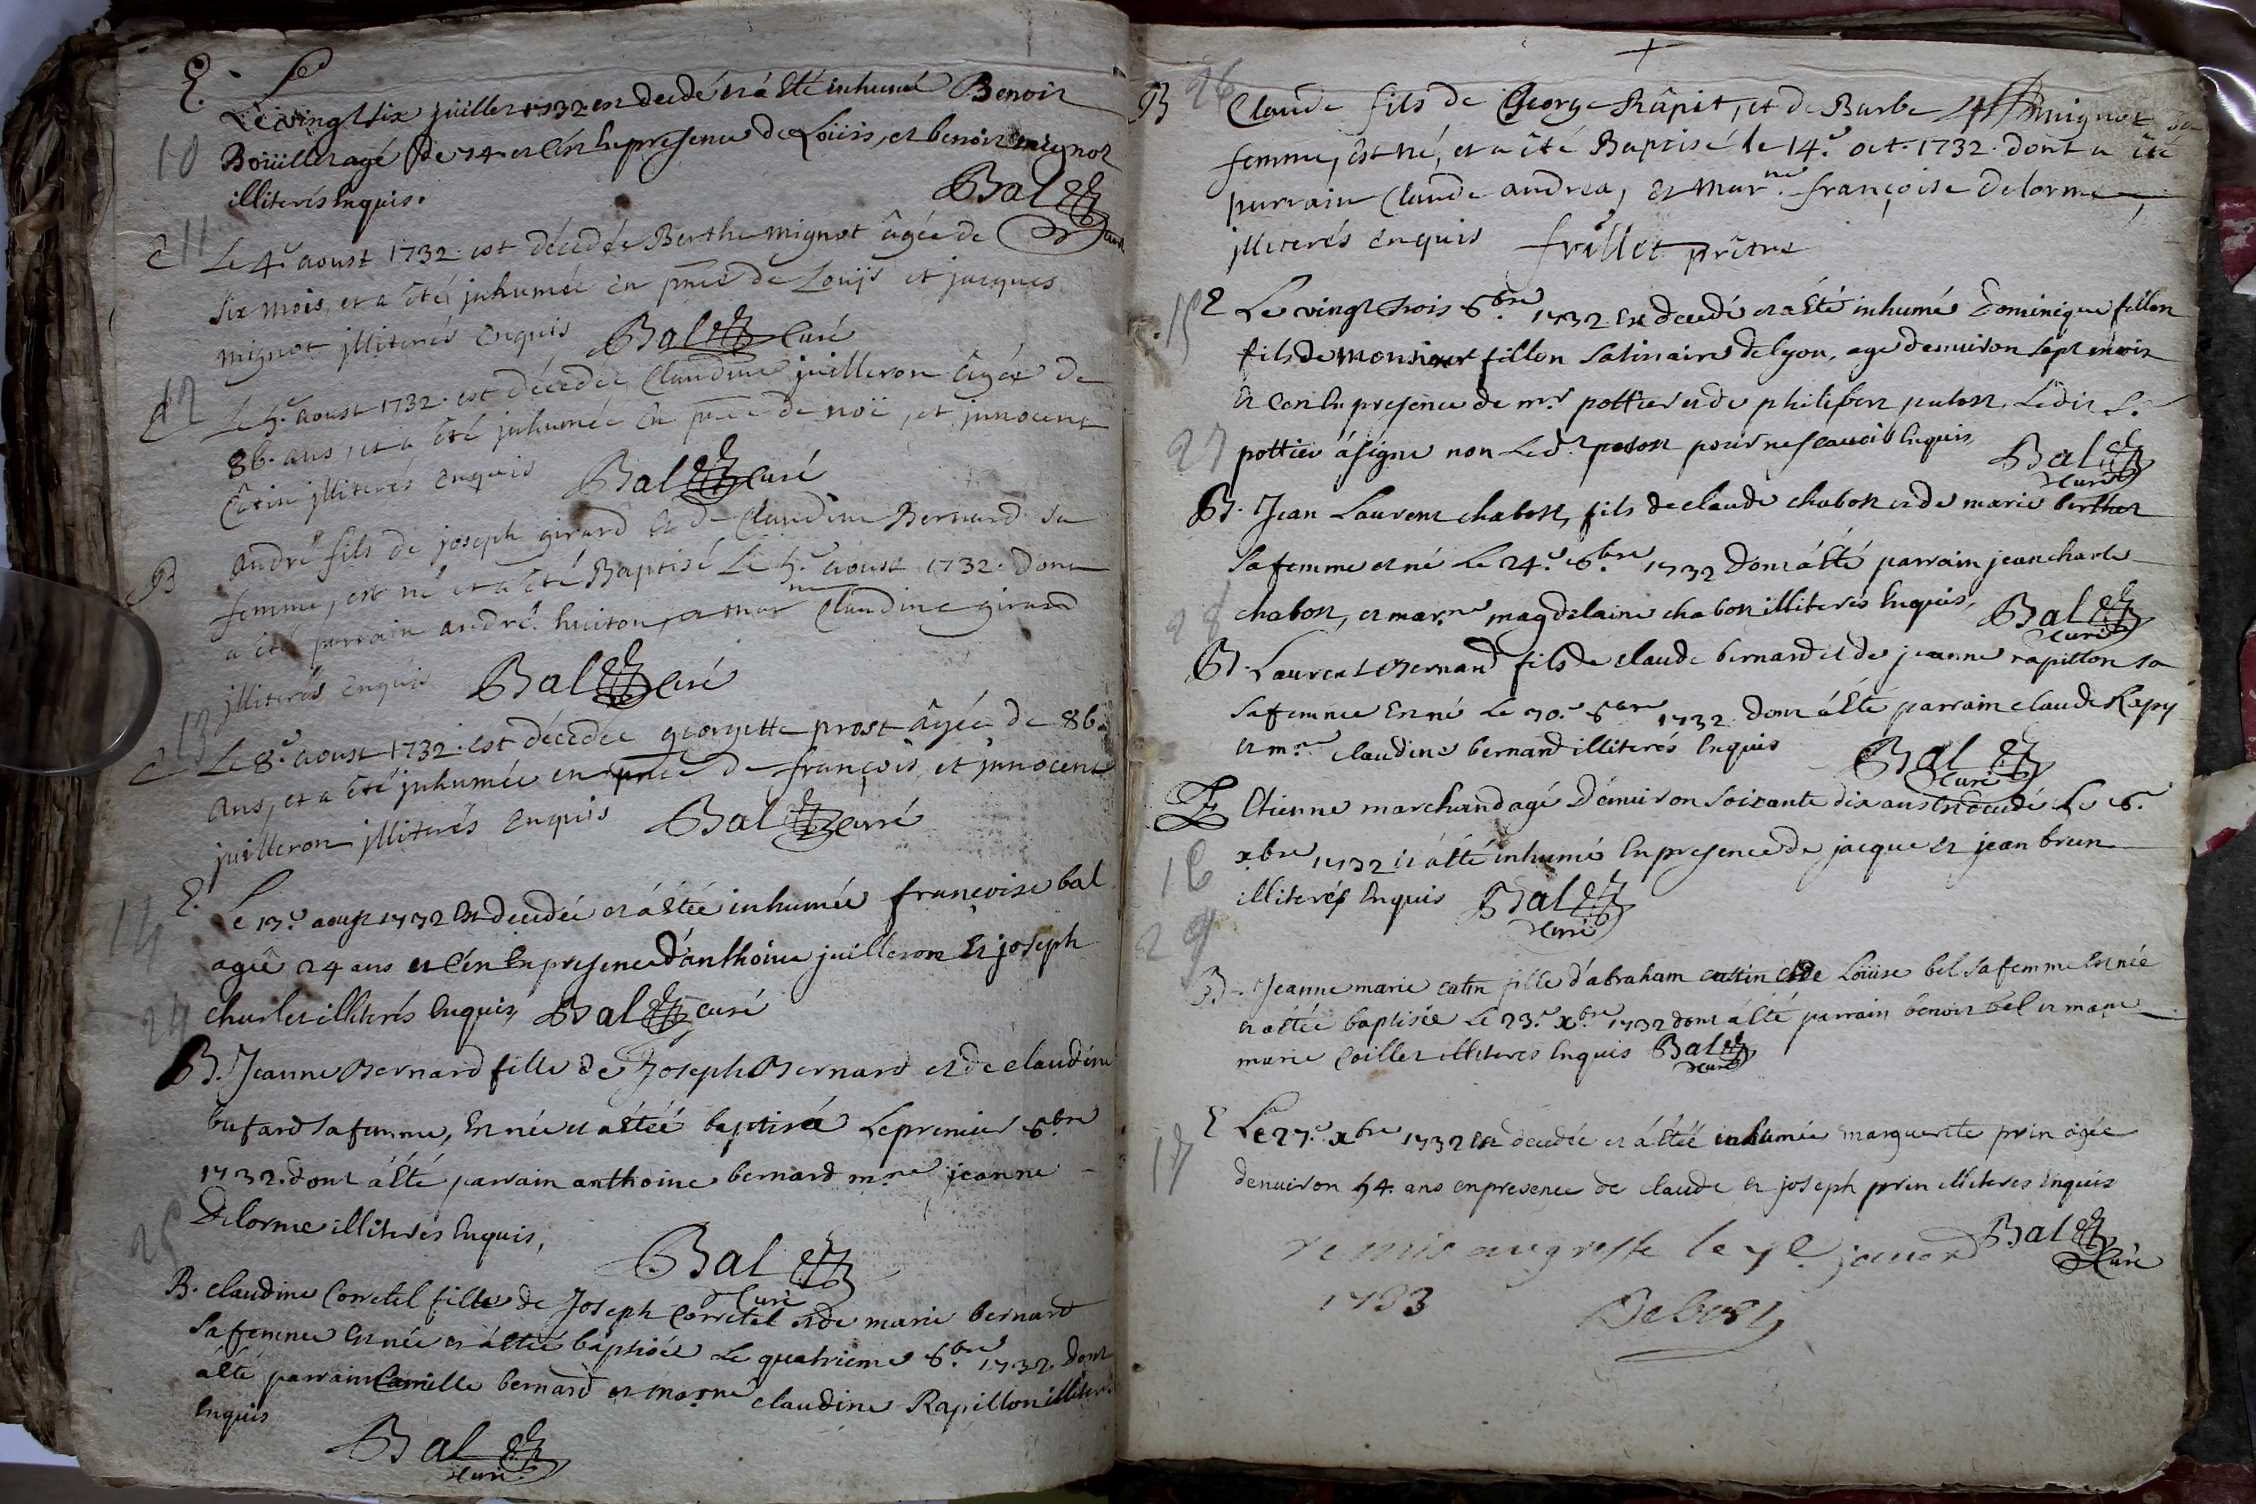 E.
10
Le vingt six juillet 1732 est decedé et a esté inhumé Benoit
Boüillet agé de 74 et c'est en presence de Loüis, et benoit mignot
illiterés enquis.
Bal curé
E 11
Le 4.e aoust 1732. est décedée Berthe mignot âgée de
six mois, et a êtéi juhumée en pnce de Louys et jacques
mignot jlliterés enquis Bal Curé
E 12
Le 5.e aoust 1732. est décedée Claudine juilleron âgée de
86. ans, et a êté juhumée en pnce de noë, et jnnocent
Câtin jlliterés enquis Bal curé
B
andré fils de joseph girard et de Claudine Bernard sa
femme, est né et a êté Baptisé Le 5.e aoust 1732. dont
a êté parrain andré huiton, et mar.ne Claudine girard
jlliterés enquis Bal Curé
E 13
Le 8.e aoust 1732. est décedée georgette prost âgée de 86.
ans, et a êté juhumée en pnce de françois, et jnnocent
juilleron jlliterés enquis Bal curé
E. 14
Le 13.e aoust 1732 est decedée et a estée inhumée françoise bal
agée 24 ans et c'est en presence d'anthoine juilleron et joseph
charlet illiterés enquis, Bal curé
24
B. Jeanne Bernard fille de Joseph Bernard et de claudine
bufard sa femme, est née et a estéé baptisée Le premier 8.bre
1732. dont a esté parrain anthoine bernard m.ne jeanne
Delorme illiterés enquis,
Bal Curé
25
B. claudine Corretel fille de Joseph Corretel et de marie bernard
sa femme est née et a estéé baptisée Le quatrieme 8.bre 1732. dont
a esté parrain Camille bernard et mar.ne claudine Rapillon illiterés
enquis
Bal curé
B 26
Claude fils de George Râpit, et de Burbe mignot sa
femme, est né, et a êté Baptisé le 14.e oct. 1732. dont a êté
parrain Claude andréa, et Mar.ne françoise delorme,
jlliterés enquis frillet prêtre
15 E
Le vingt trois 8.bre 1732 est decedé et a esté inhumé Dominique fillon
fils de monsieur fillon salinaire de lyon, agé denuiron sept mois
et c'est en presence de m.r pottier et de philibert pulost, Ledit S.r
pottier a signé non Led.t pulost pour ne scauoir enquis,
Bal curé
27
B. Jean Laurent chabost, fils de claude chabost et de marie berthet
sa femme est né Le 24.e 8.bre 1732 dont a esté parrain jean charle
chabost, et mar.ne magdelaine chabost illiterés enquis, Bal curé
28
B. Laurent Bernard fils de claude bernard et de jeanne rapillon sa
sa femme est né Le 30.e 8.bre 1732 dont a esté parrain claude Rapy
et m.ne claudine bernard illiterés enquis Bal curé
E 16
Etienne marchand agé d'enuiron soixante dix ans est decedé Le 6.e
xbre 1732 et a esté inhumé en presence de jacque et jean brun
illiterés enquis Bal Curé
29
B. Jeanne marie catin fille d'abraham castin et de Loüise bel sa femme est née
et a estée baptisée Le 23.e x.bre 1732 dont a esté parrain benoit bel et mar.ne
marie Coillet illiterés enquis Bal curé
E 17
Le 27.e xbre 1732 est decedée et a estéé inhumée marguerite prin agée
denuiron 54. ans en presence de claude et joseph prin illiterés enquis
Bal Curé
remis au greffe le janer
1733